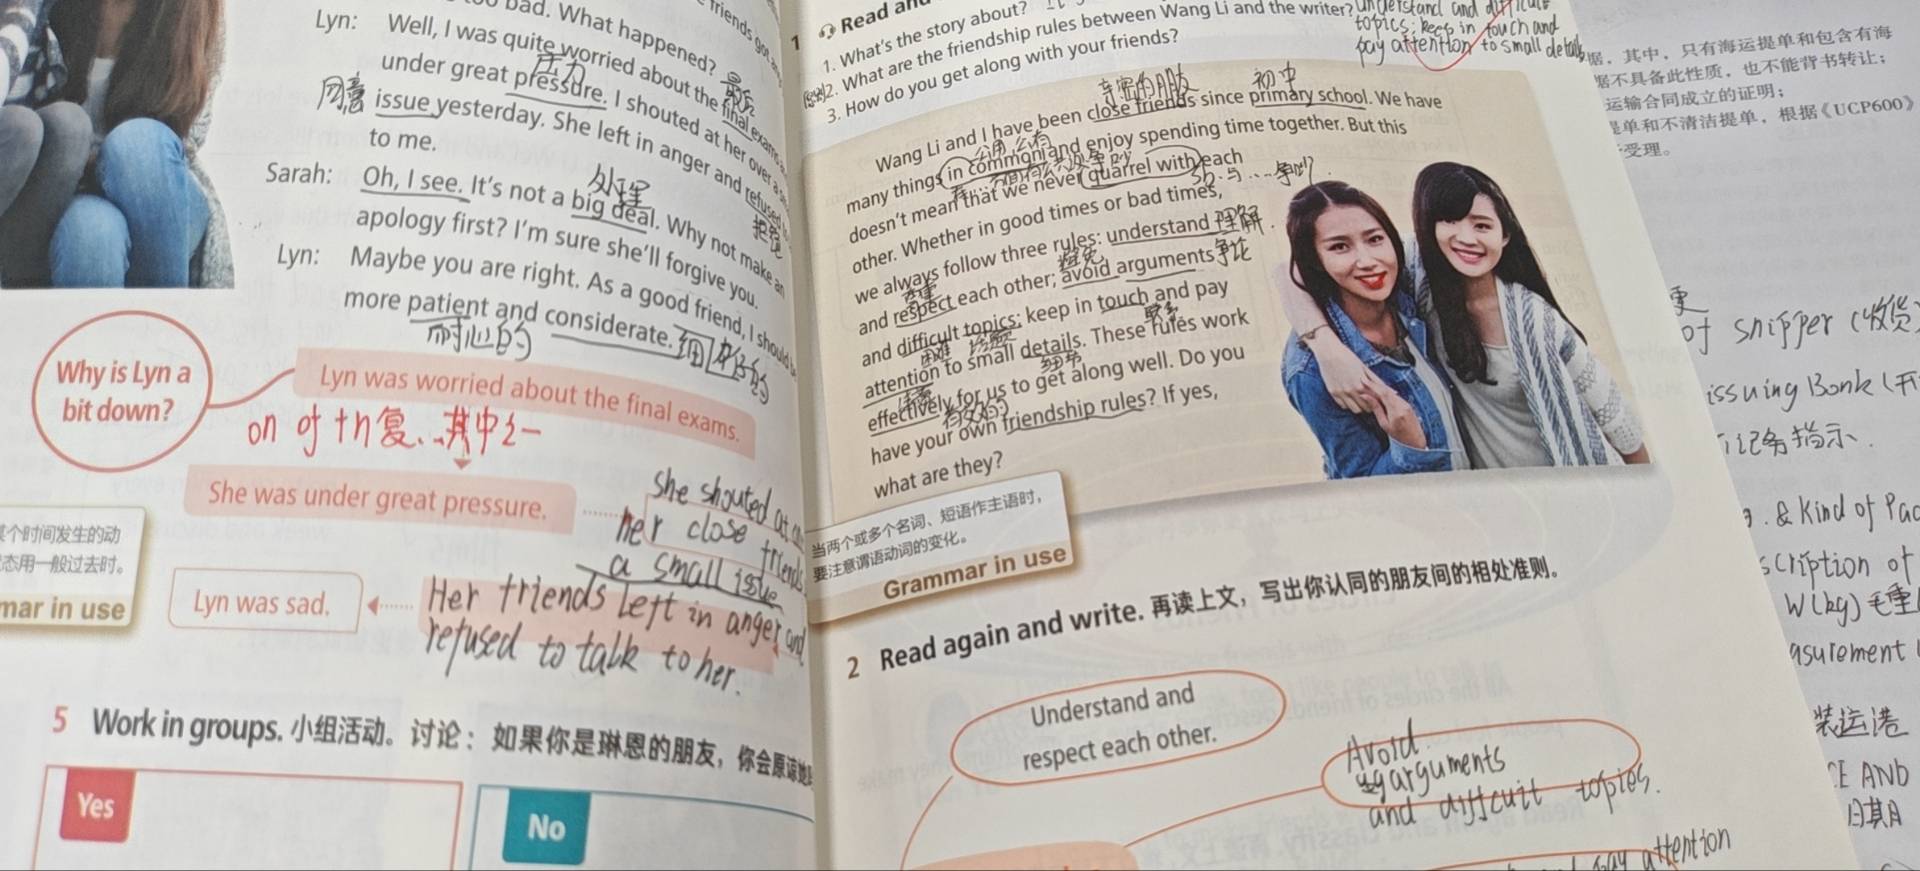 bad. What happened?
Lyn: Well, I was quite worried about the final exams
最后
under great pressure. I shouted at her over a
压力
issue yesterday. She left in anger and refused
to me.
拒绝
Sarah: Oh, I see. It's not a big deal. Why not make an
处理
apology first? I'm sure she'll forgive you.
Lyn: Maybe you are right. As a good friend, I should
more patient and considerate.
耐心的
Why is Lyn a
bit down?
Lyn was worried about the final exams.
on of +n复...其中之一
She was under great pressure.
She shouted at
her close friends
a small issue
某个时间发生的动
态用一般过去时。
mar in use
Lyn was sad.
Her friends left in anger and
refused to talk to her.
5 Work in groups. 小组活动。讨论：如果你是琳恩的朋友，你会原谅她
Yes
No
1 Read and
1. What's the story about?
2. What are the friendship rules between Wang Li and the writer?
3. How do you get along with your friends?
understand and difficult
topics; keep in touch and
pay attention to small details
亲密的朋友
初中
Wang Li and I have been close friends since primary school. We have
many things in common and enjoy spending time together. But this
doesn't mean that we never quarrel with each
sb.与....争吵
other. Whether in good times or bad times,
we always follow three rules: understand
理解
and respect each other; avoid arguments
尊重
避免
争论
and difficult topics; keep in touch and pay
困难
联系
attention to small details. These rules work
细节
effectively for us to get along well. Do you
have your own friendship rules? If yes,
what are they?
当两个或多个名词、短语作主语时，
要注意谓语动词的变化。
Grammar in use
2 Read again and write. 再读上文，写出你认同的朋友间的相处准则。
Understand and
respect each other.
Avoid
arguments
and diffcuit topies.
pay attention
据，其中，只有海运提单和包含有海
据不具备此性质，也不能背书转让；
运输合同成立的证明；
提单和不清洁提单，根据《UCP600》
受理。
of snipper (收货
issuing Bonk (开
记名指示.
. & Kind of Pac
scription of
W(kg)毛重
asurement
装运港
CE AND
日期